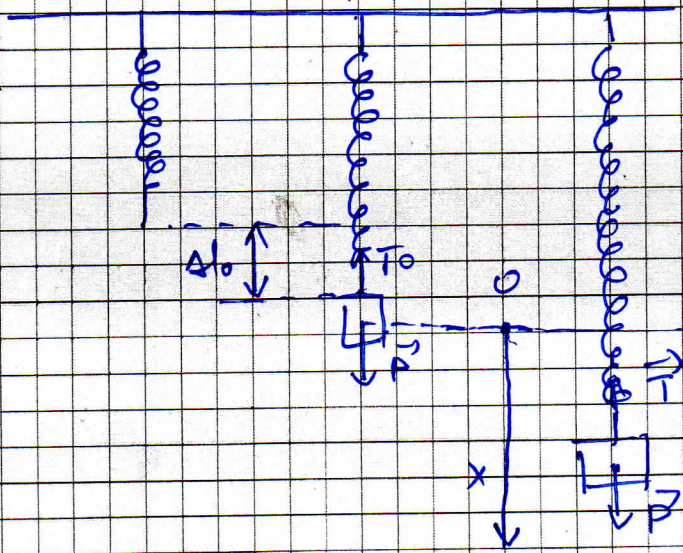 Δl₀
T₀
O
P⃗
T⃗
x
P⃗